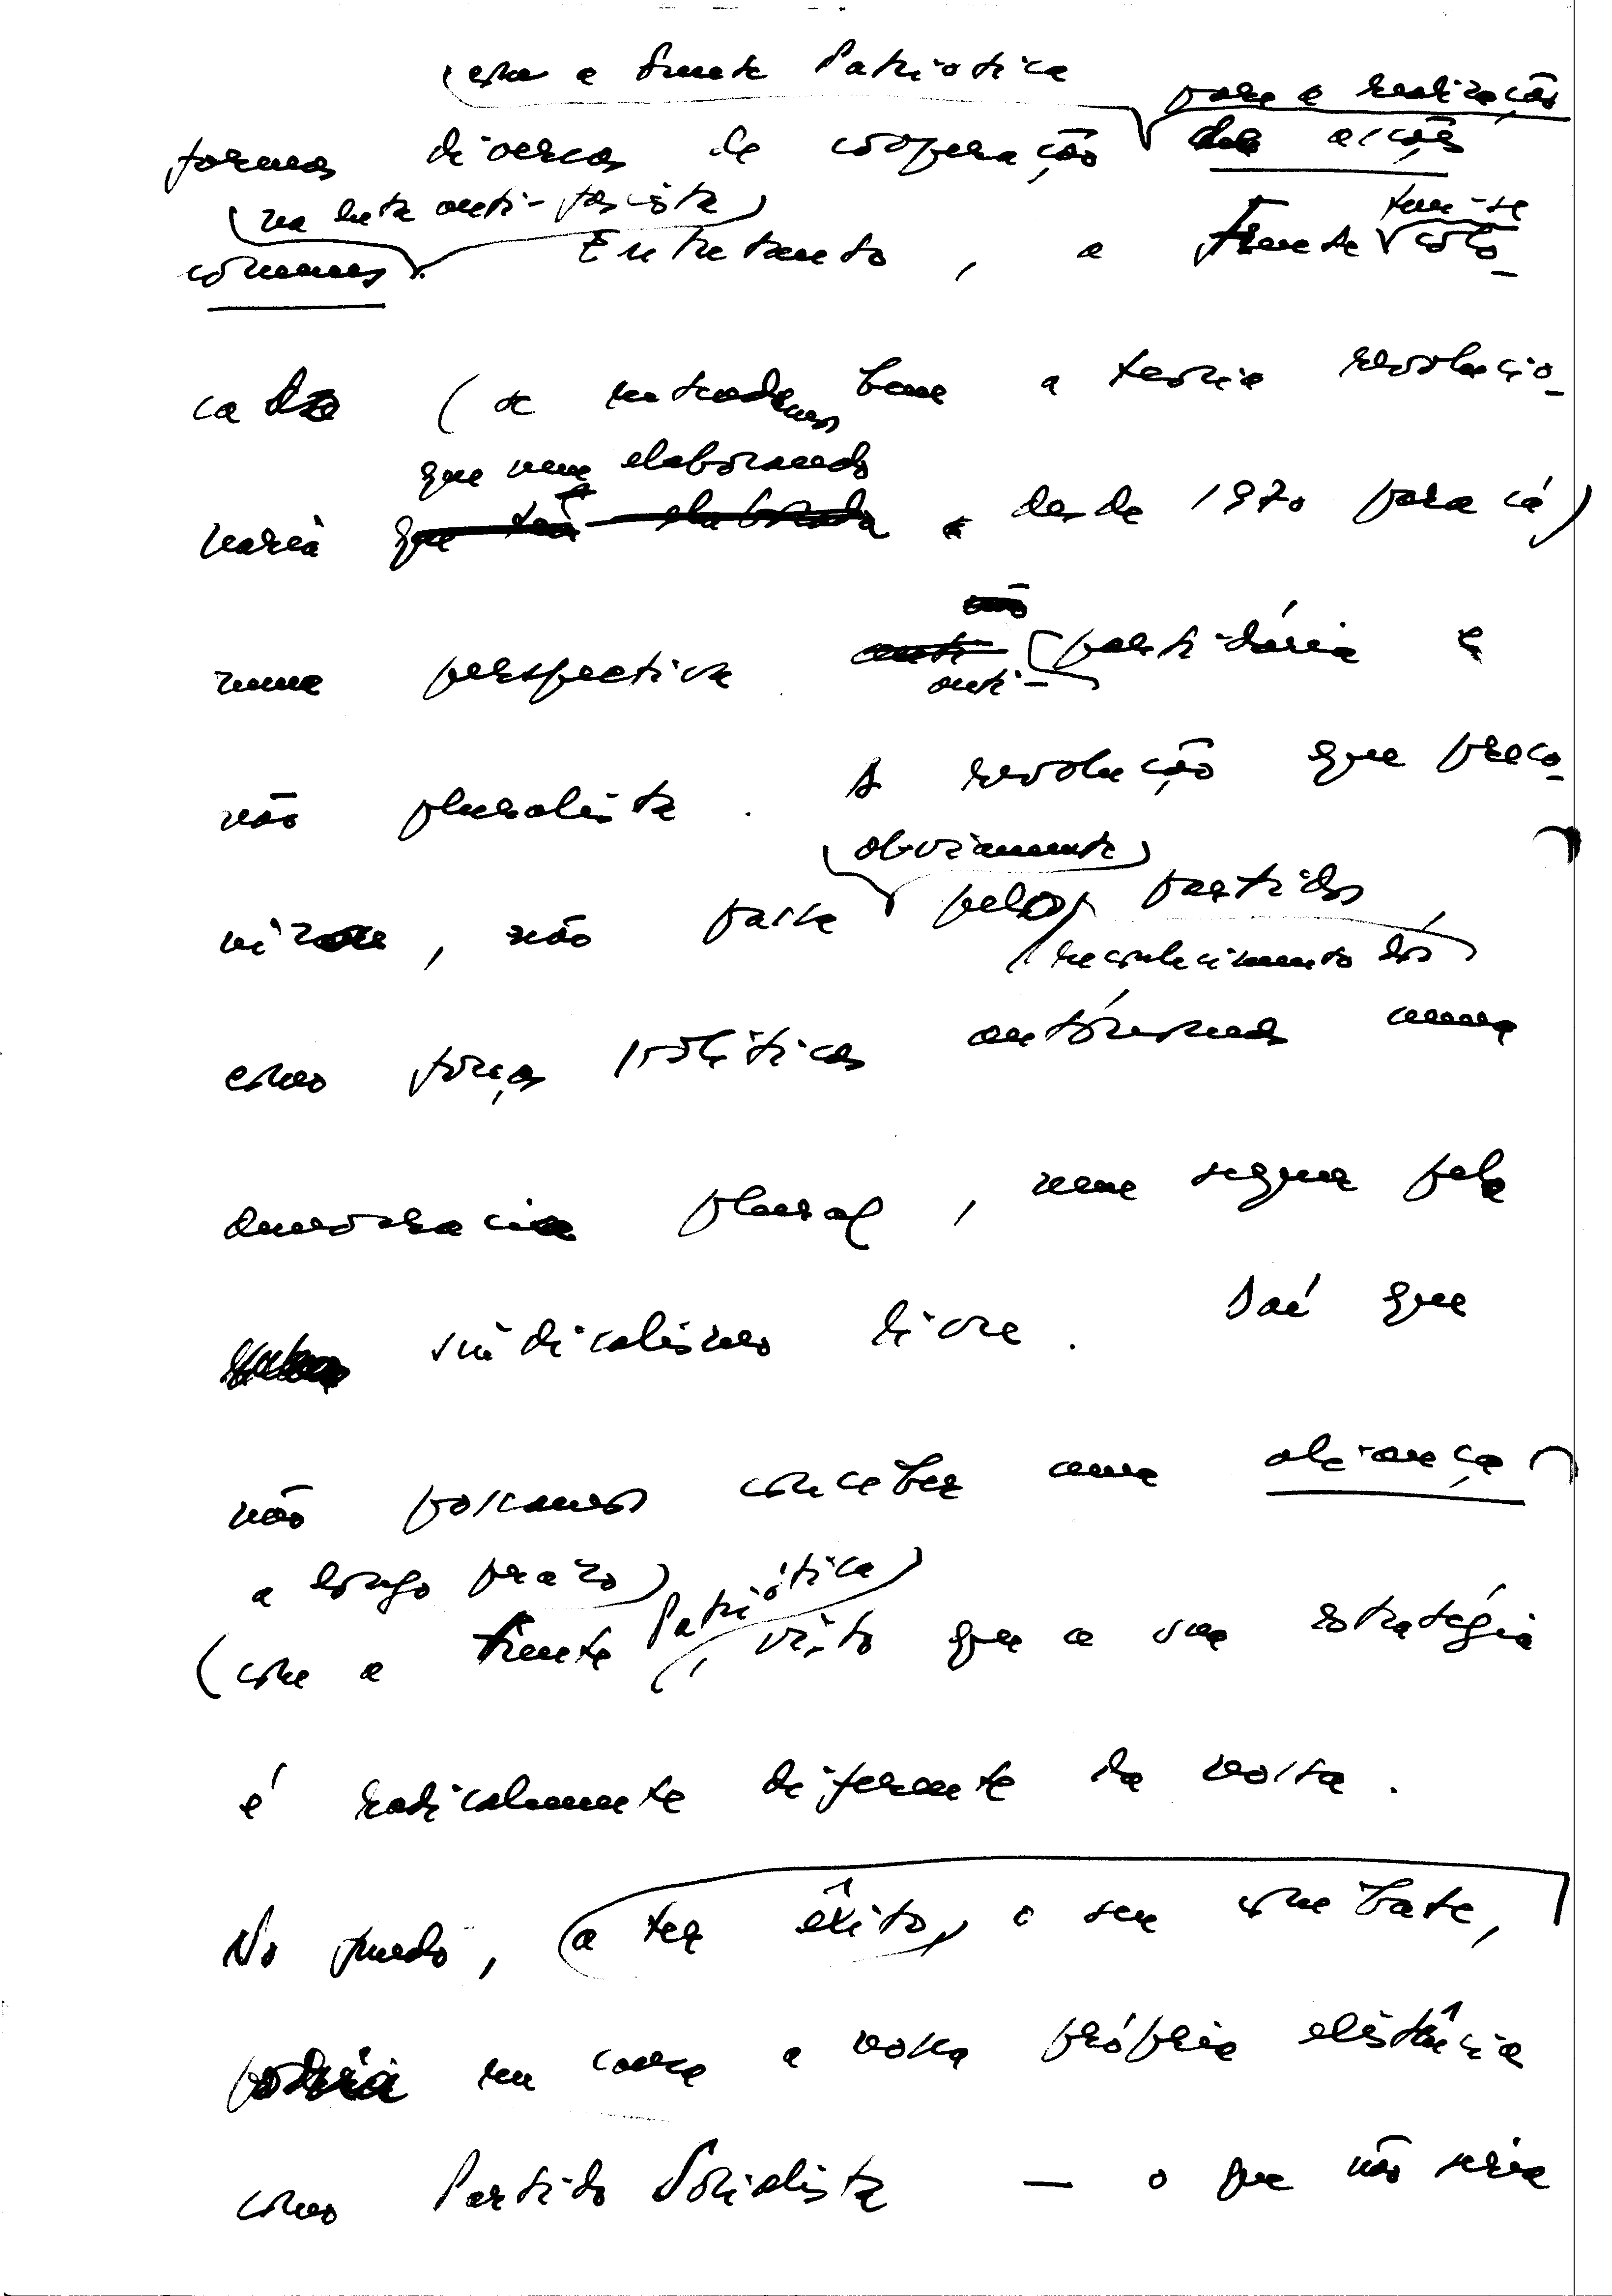 com a Frente Patriótica
para a realização
formas diversas de cooperação de acções
na luta anti-fascista
tem-se
comuns. Entretanto, a Frente colo-
cado (se entendemos bem a teoria revolucio-
que vem elaborando
nária que tem elaborada, desde 1970 para cá)
não
numa perspectiva anti partidária e
anti-
não pluralista. A revolução que preco-
obviamente
niza, não passa pelos partidos,
reconhecimento dos
como forças políticas autónomas numa
democracia plural, nem sequer pelo
sindicalismo livre. Daí que
não possamos conceber uma aliança
a longo prazo
(com a Frente Patriótica), visto que a sua estratégia
é radicalmente diferente da nossa.
No fundo, a ter êxito, o seu combate,
poria em causa a nossa própria existência
como Partido Socialista — o que não seria